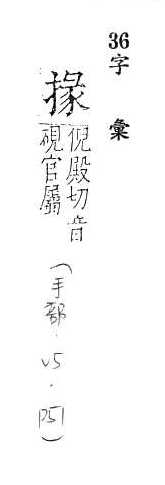 36字 彙
掾
倪殿切音
硯官屬
(手部.V5.P5)